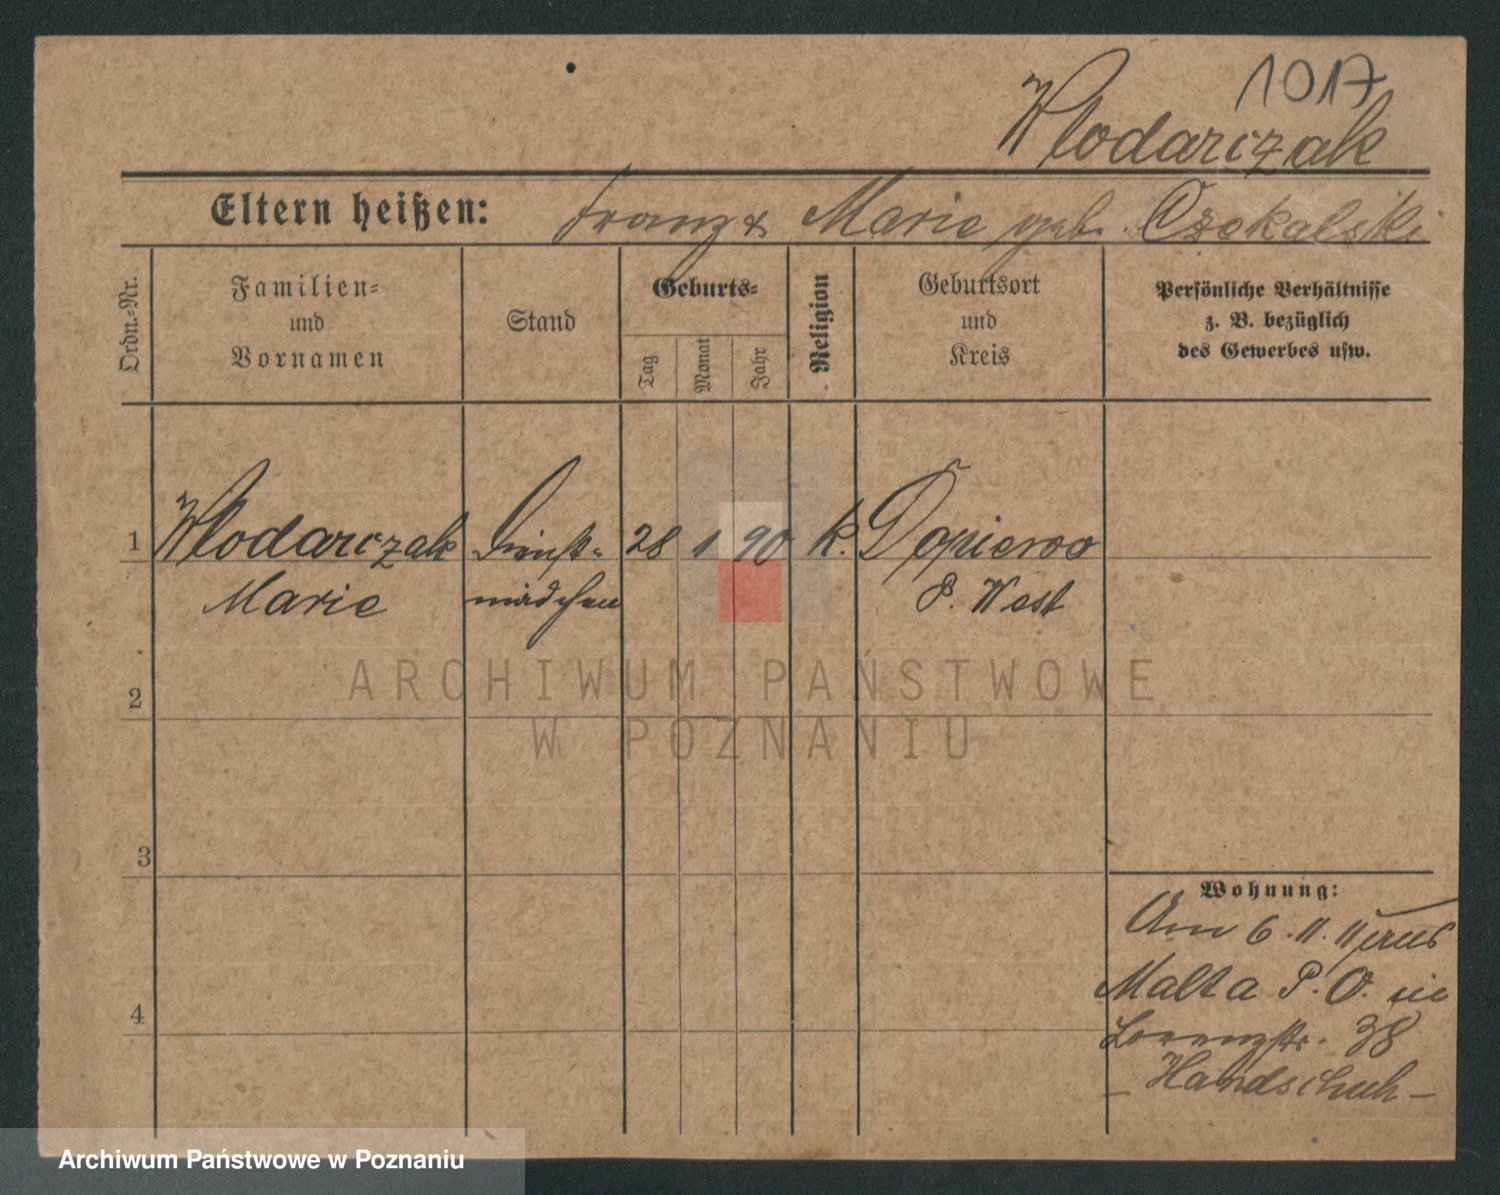 1017
Wlodarczak
Eltern heißen: Franz & Marie geb. Czekalski
Ordn.-Nr.
Familien-
und
Vornamen
Stand
Geburts-
Tag
Monat
Jahr
Religion
Geburtsort
und
Kreis
Persönliche Verhältnisse
z. B. bezüglich
des Gewerbes usw.
1 Wlodarczak Dienst- 28 1 90 K. Dopiewo
Marie mädchen P. West
2
3
4
Wohnung:
Am 6. 11. 11
Malta P. O. in
Lorenzstr. 38
– Handschuh –
ARCHIWUM PAŃSTWOWE
W POZNANIU
Archiwum Państwowe w Poznaniu